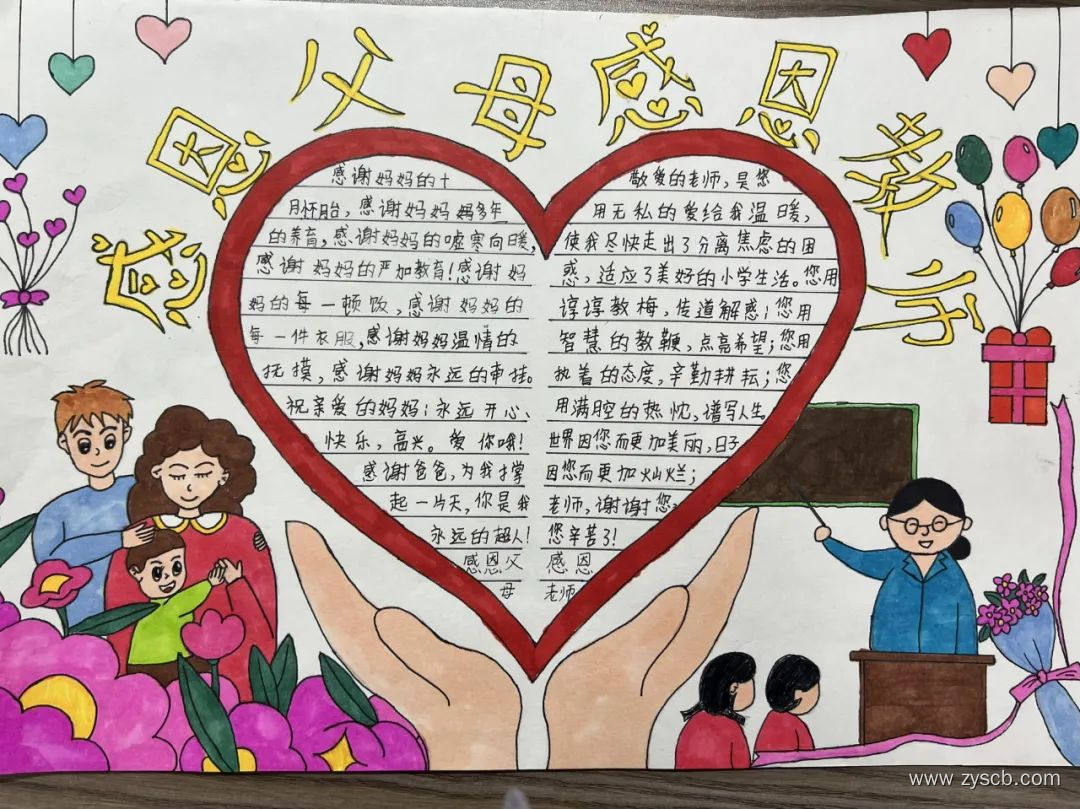 感恩父母感恩教师
感谢妈妈的十
月怀胎，感谢妈妈妈多年
的养育，感谢妈妈的嘘寒向暖，
感谢妈妈的严加教育！感谢妈
妈的每一顿饭，感谢妈妈的
每一件衣服，感谢妈妈温情的
抚摸，感谢妈妈永远的牵挂。
祝亲爱的妈妈：永远开心、
快乐，高兴。爱你哦！
感谢爸爸，为我撑
起一片天，你是我
永远的超人！
感恩父
母
敬爱的老师，是您
用无私的爱给我温暖，
使我尽快走出了分离焦虑的困
惑，适应了美好的小学生活。您用
谆谆教梅，传道解惑；您用
智慧的教鞭，点亮希望；您用
执着的态度，辛勤耕耘；您
用满腔的热忱，谱写人生
世界因您而更加美丽，日子
因您而更加灿烂；
老师，谢谢您，
您辛苦了！
感恩
老师
www.zyscb.com